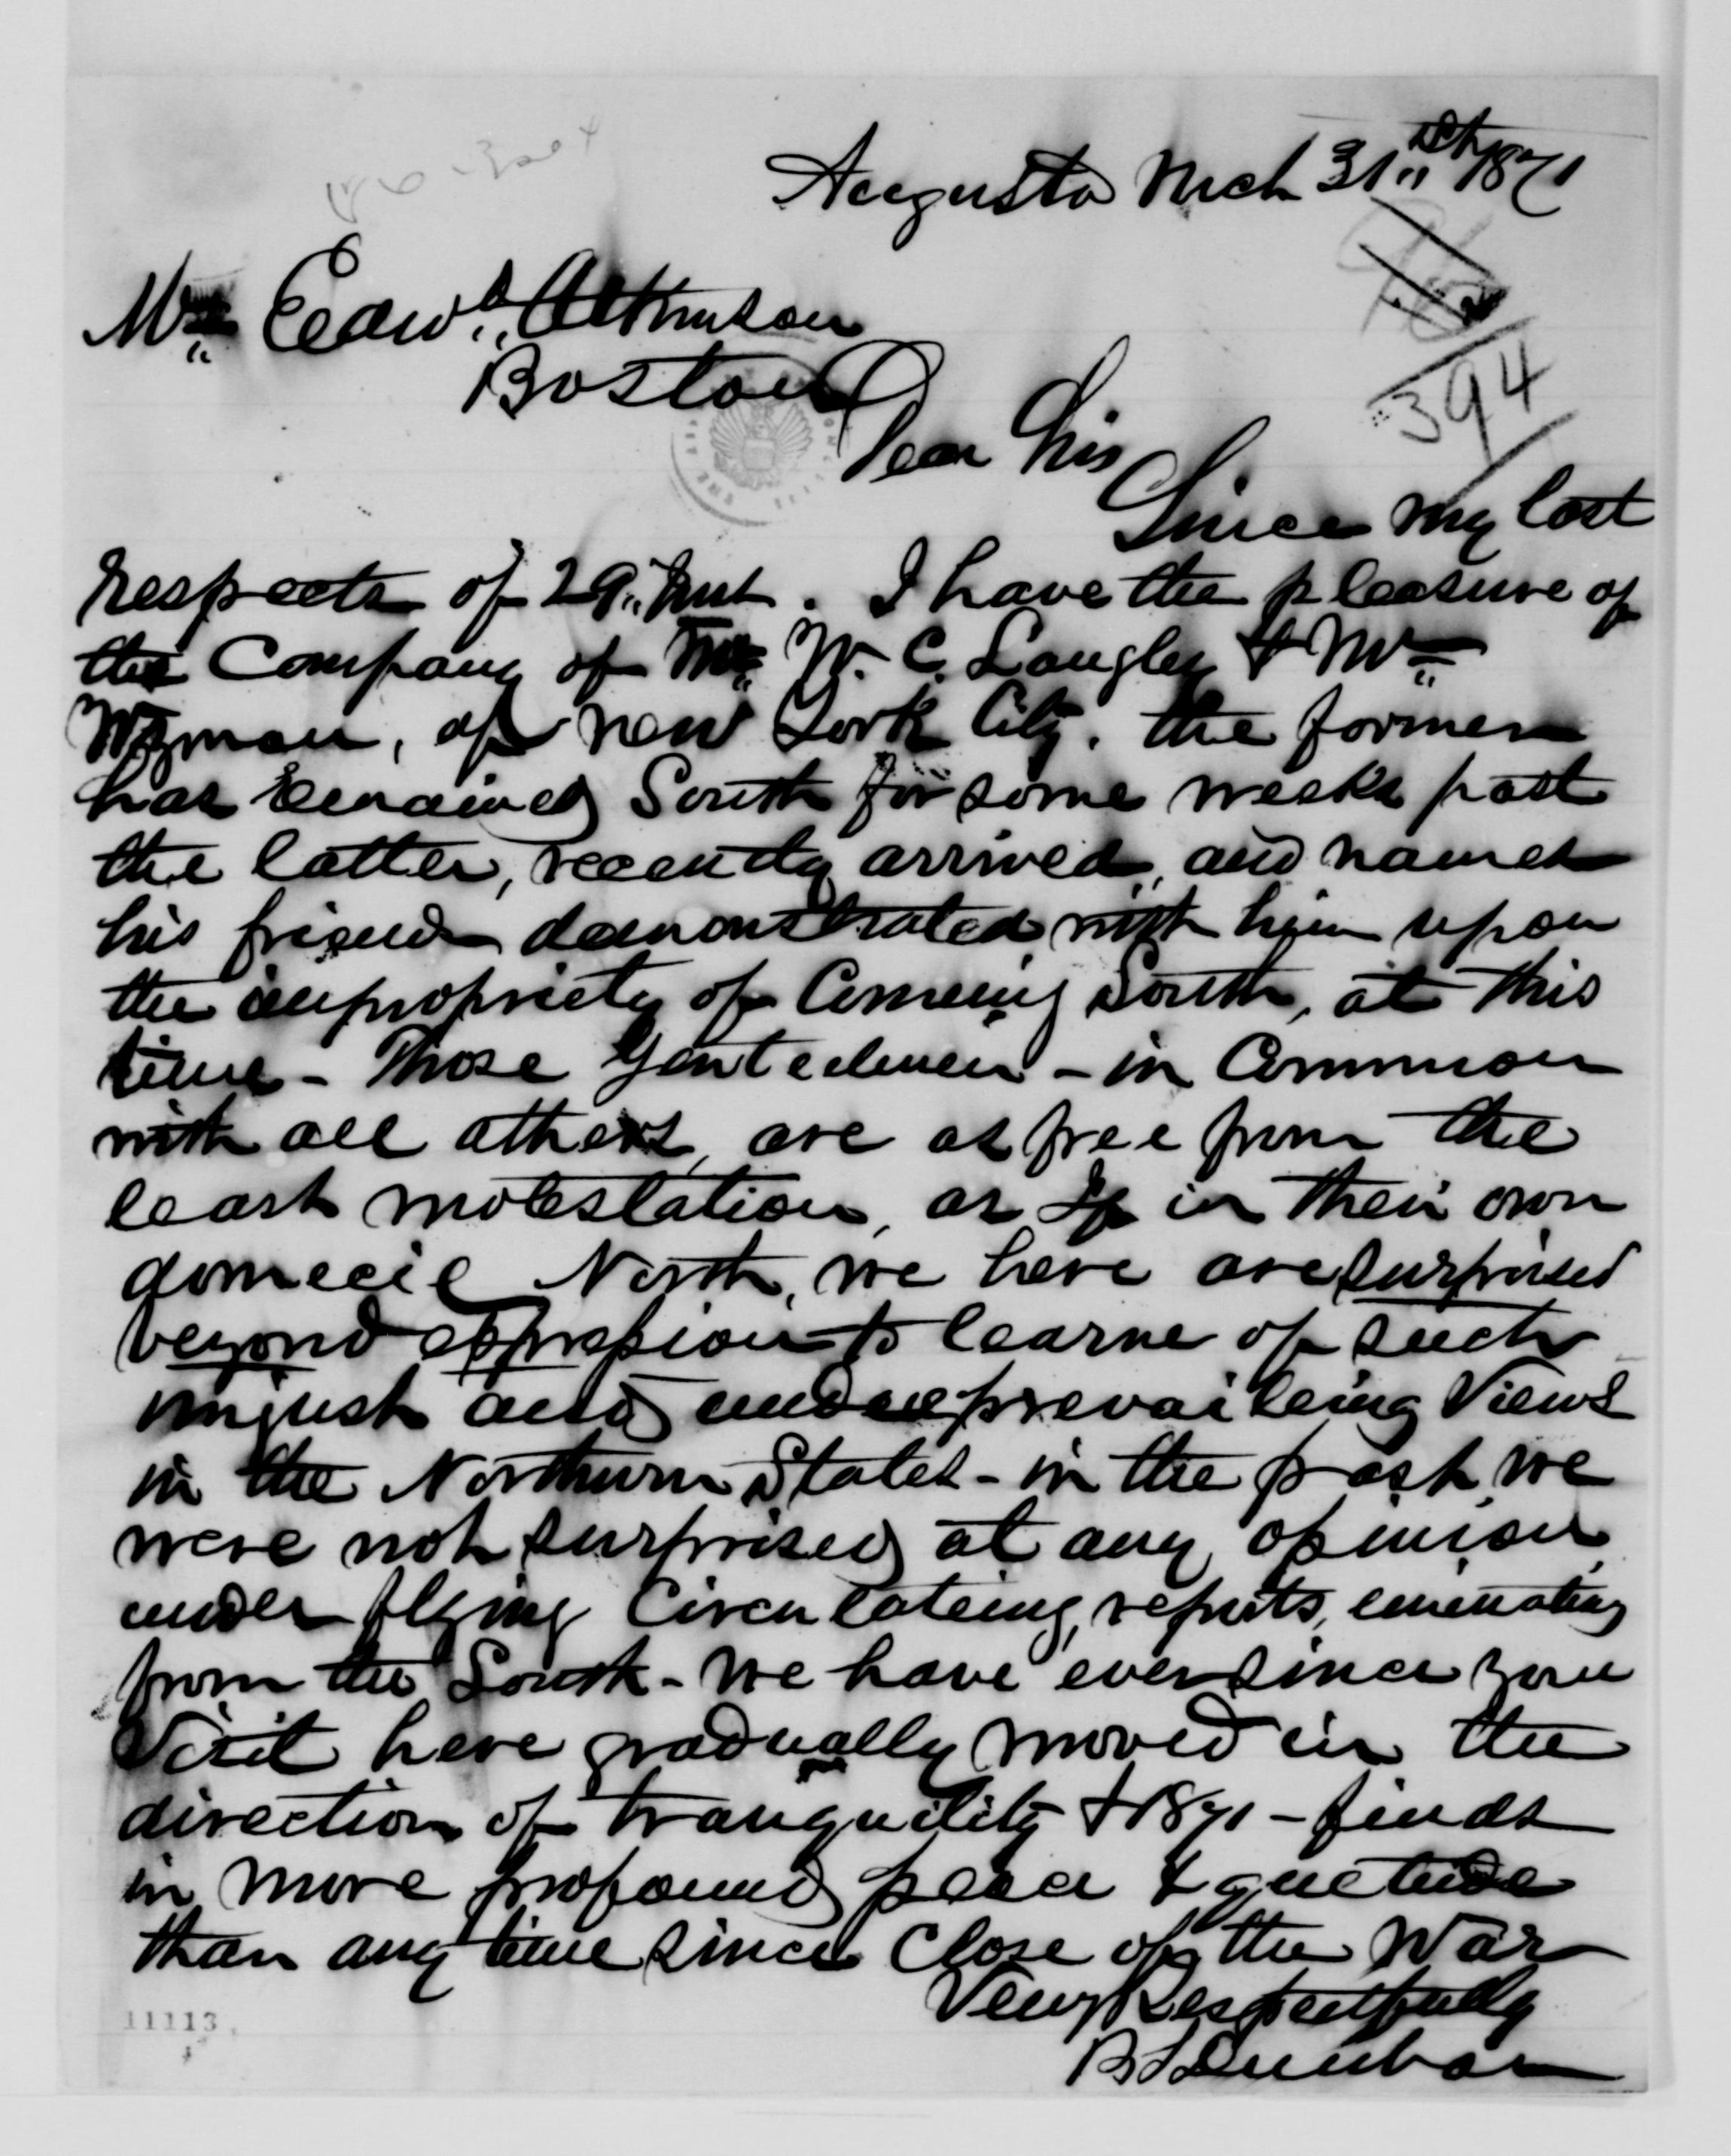 Augusta Mch 31st 1871
Mr Edwd Atkinson
Boston
394
Dear Sir
Since my last
respects of 29" Inst. I have the pleasure of
the Company of Mr W. C. Langley & Mr
Wyman, of New York City. the former
has remained South for some weeks past
the latter, recently arrived, and names
his friends demonstrated with him upon
the impropriety of Comeing South, at this
time - Those Gentlemen - in Common
with all others, are as free from the
least molestation, as If in their own
domecil North, we here are surprised
beyond expression to learne of such
unjust and undue prevaileing Views
in the Northern States - in the past, we
were not surprised at any opinion
under flying Circulateing, reports, eminating
from the South - We have ever since your
Visit here gradually moved in the
direction of tranquility & 1871 - finds
in more profound peace & quietude
than any time since Close of the War
Very Respectfully
Dunbar
11113